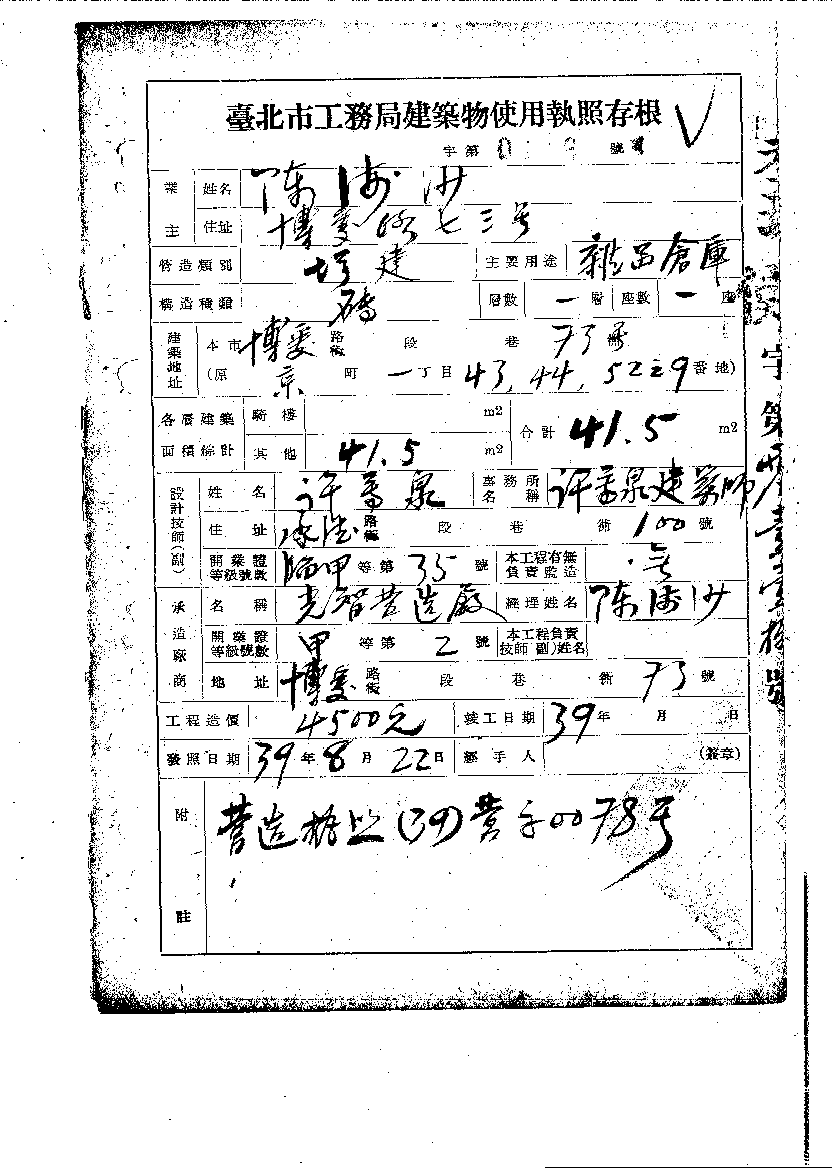 臺北市工務局建築物使用執照存根
字第 號
業主 姓名 陳海沙
住址 博愛路七三号
營造類別 增建 主要用途 雜品倉庫
構造種類 磚 層數 一層 座數 一座
建築地址 本市 博愛 路街 段 巷 73 號
(原 京 町 一丁目 43, 44, 52-29 番地)
各層建築面積總計 騎樓 m2 合計 41.5 m2
其他 41.5 m2
設計技師(副) 姓名 許萬泉 事務所名稱 許萬泉建築師
住址 承德 路街 段 巷 衖 100 號
開業證等級號數 甲等第 35 號 本工程有無負責監造 無
承造廠商 名稱 光智营造廠 經理姓名 陳海沙
開業證等級號數 甲 等第 2 號 本工程負責技師(副)姓名
地址 博愛 路街 段 巷 衖 73 號
工程造價 4500元 竣工日期 39年 月 日
發照日期 39年8月22日 經手人 (簽章)
附註 营造執照(39)营字0078号